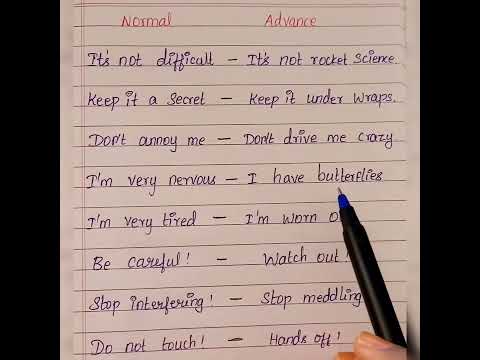 Normal Advance
It's not difficult - It's not rocket science.
Keep it a secret - Keep it under wraps.
Don't annoy me - Don't drive me crazy
I'm very nervous - I have butterflies
I'm very tired - I'm worn
Be careful! - Watch out!
Stop interfering! - Stop meddling
Do not touch! - Hands off!